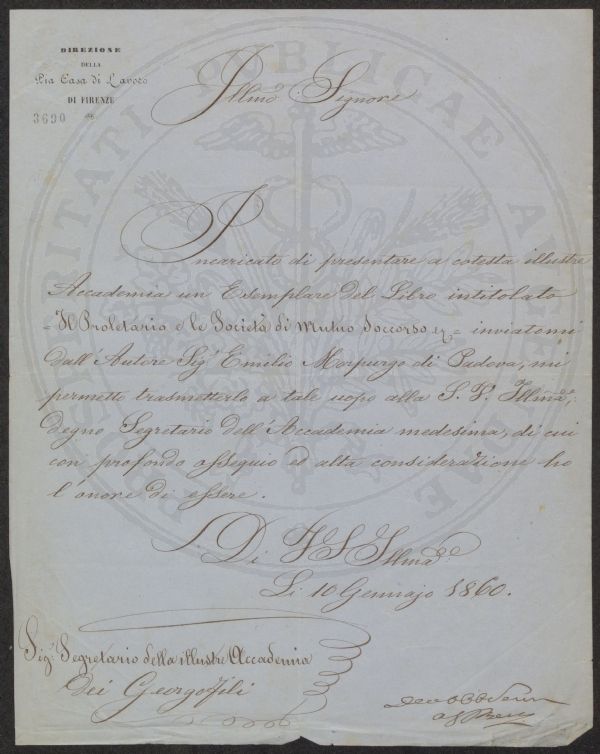 DIREZIONE
DELLA
Pia Casa di Lavoro
DI FIRENZE
3690
PROSPERITATI PUBLICAE AUGENDAE
Illmo. Signore
Incaricato di presentare a cotesta illustre
Accademia un Esemplare del Libro intitolato
= Il Proletario e le Società di Mutuo Soccorso = inviatomi
dall'Autore Sigr. Emilio Morpurgo di Padova, mi
permetto trasmetterlo a tale uopo alla S. V. Illma,
degno Segretario dell'Accademia medesima, di cui
con profondo ossequio ed alta considerazione ho
l'onore di essere.
Di V. S. Illma
Li 10 Gennajo 1860.
Sigr. Segretario della illustre Accademia
dei Georgofili